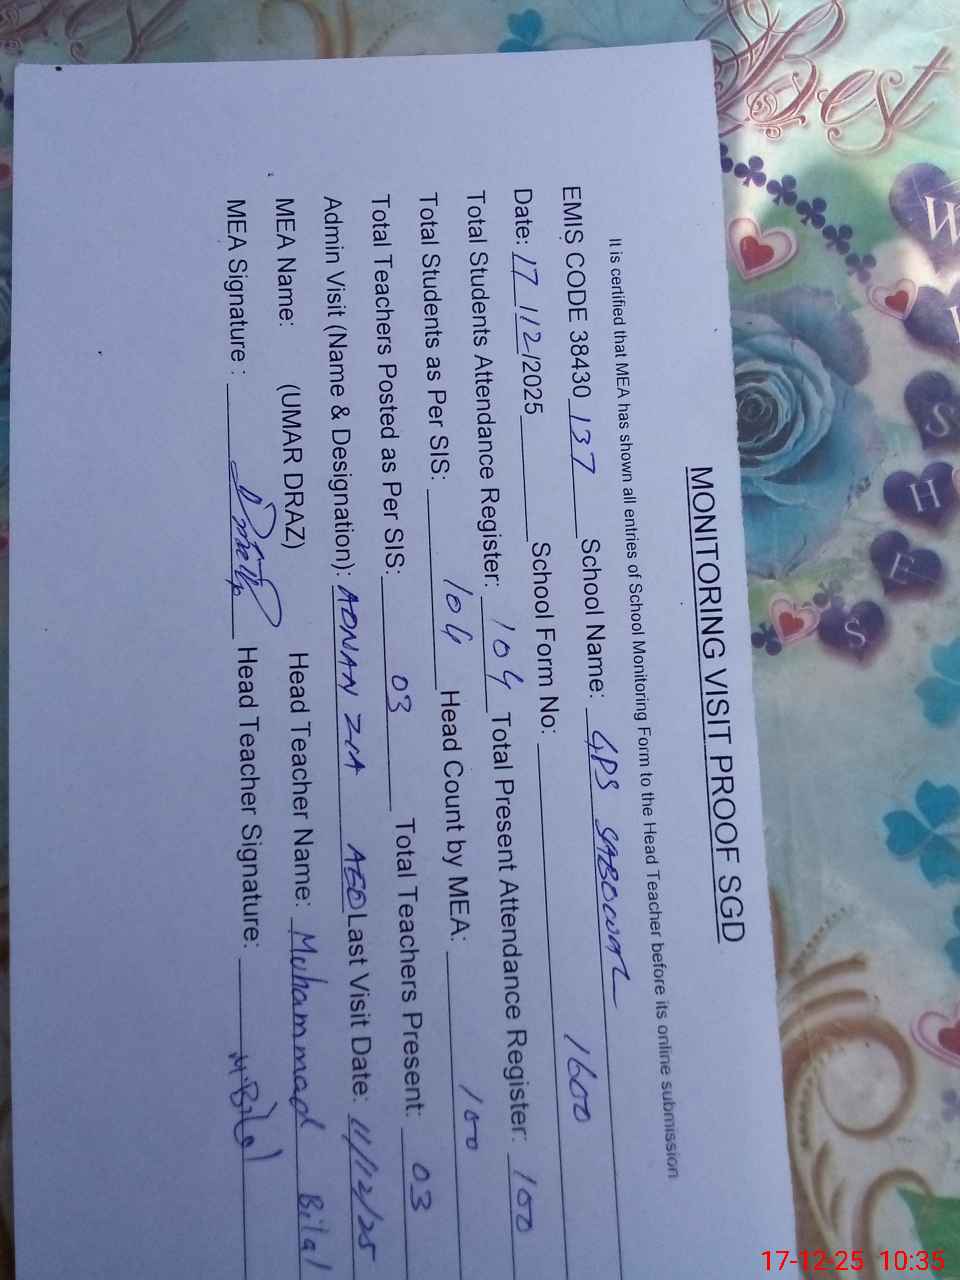 MONITORING VISIT PROOF SGD
It is certified that MEA has shown all entries of School Monitoring Form to the Head Teacher before its online submission
EMIS CODE 38430 137 School Name: GPS SABOWAL
Date: 17/12/2025 School Form No: 1600
Total Students Attendance Register: 104 Total Present Attendance Register: 100
Total Students as Per SIS: 104 Head Count by MEA: 100
Total Teachers Posted as Per SIS: 03 Total Teachers Present: 03
Admin Visit (Name & Designation): ADNAN ZIA AEO Last Visit Date: 11/12/25
MEA Name: (UMAR DRAZ) Head Teacher Name: Muhammad Bilal
MEA Signature : Head Teacher Signature: M.Bilal
Best
W
I
S
H
E
S
17-12-25 10:35